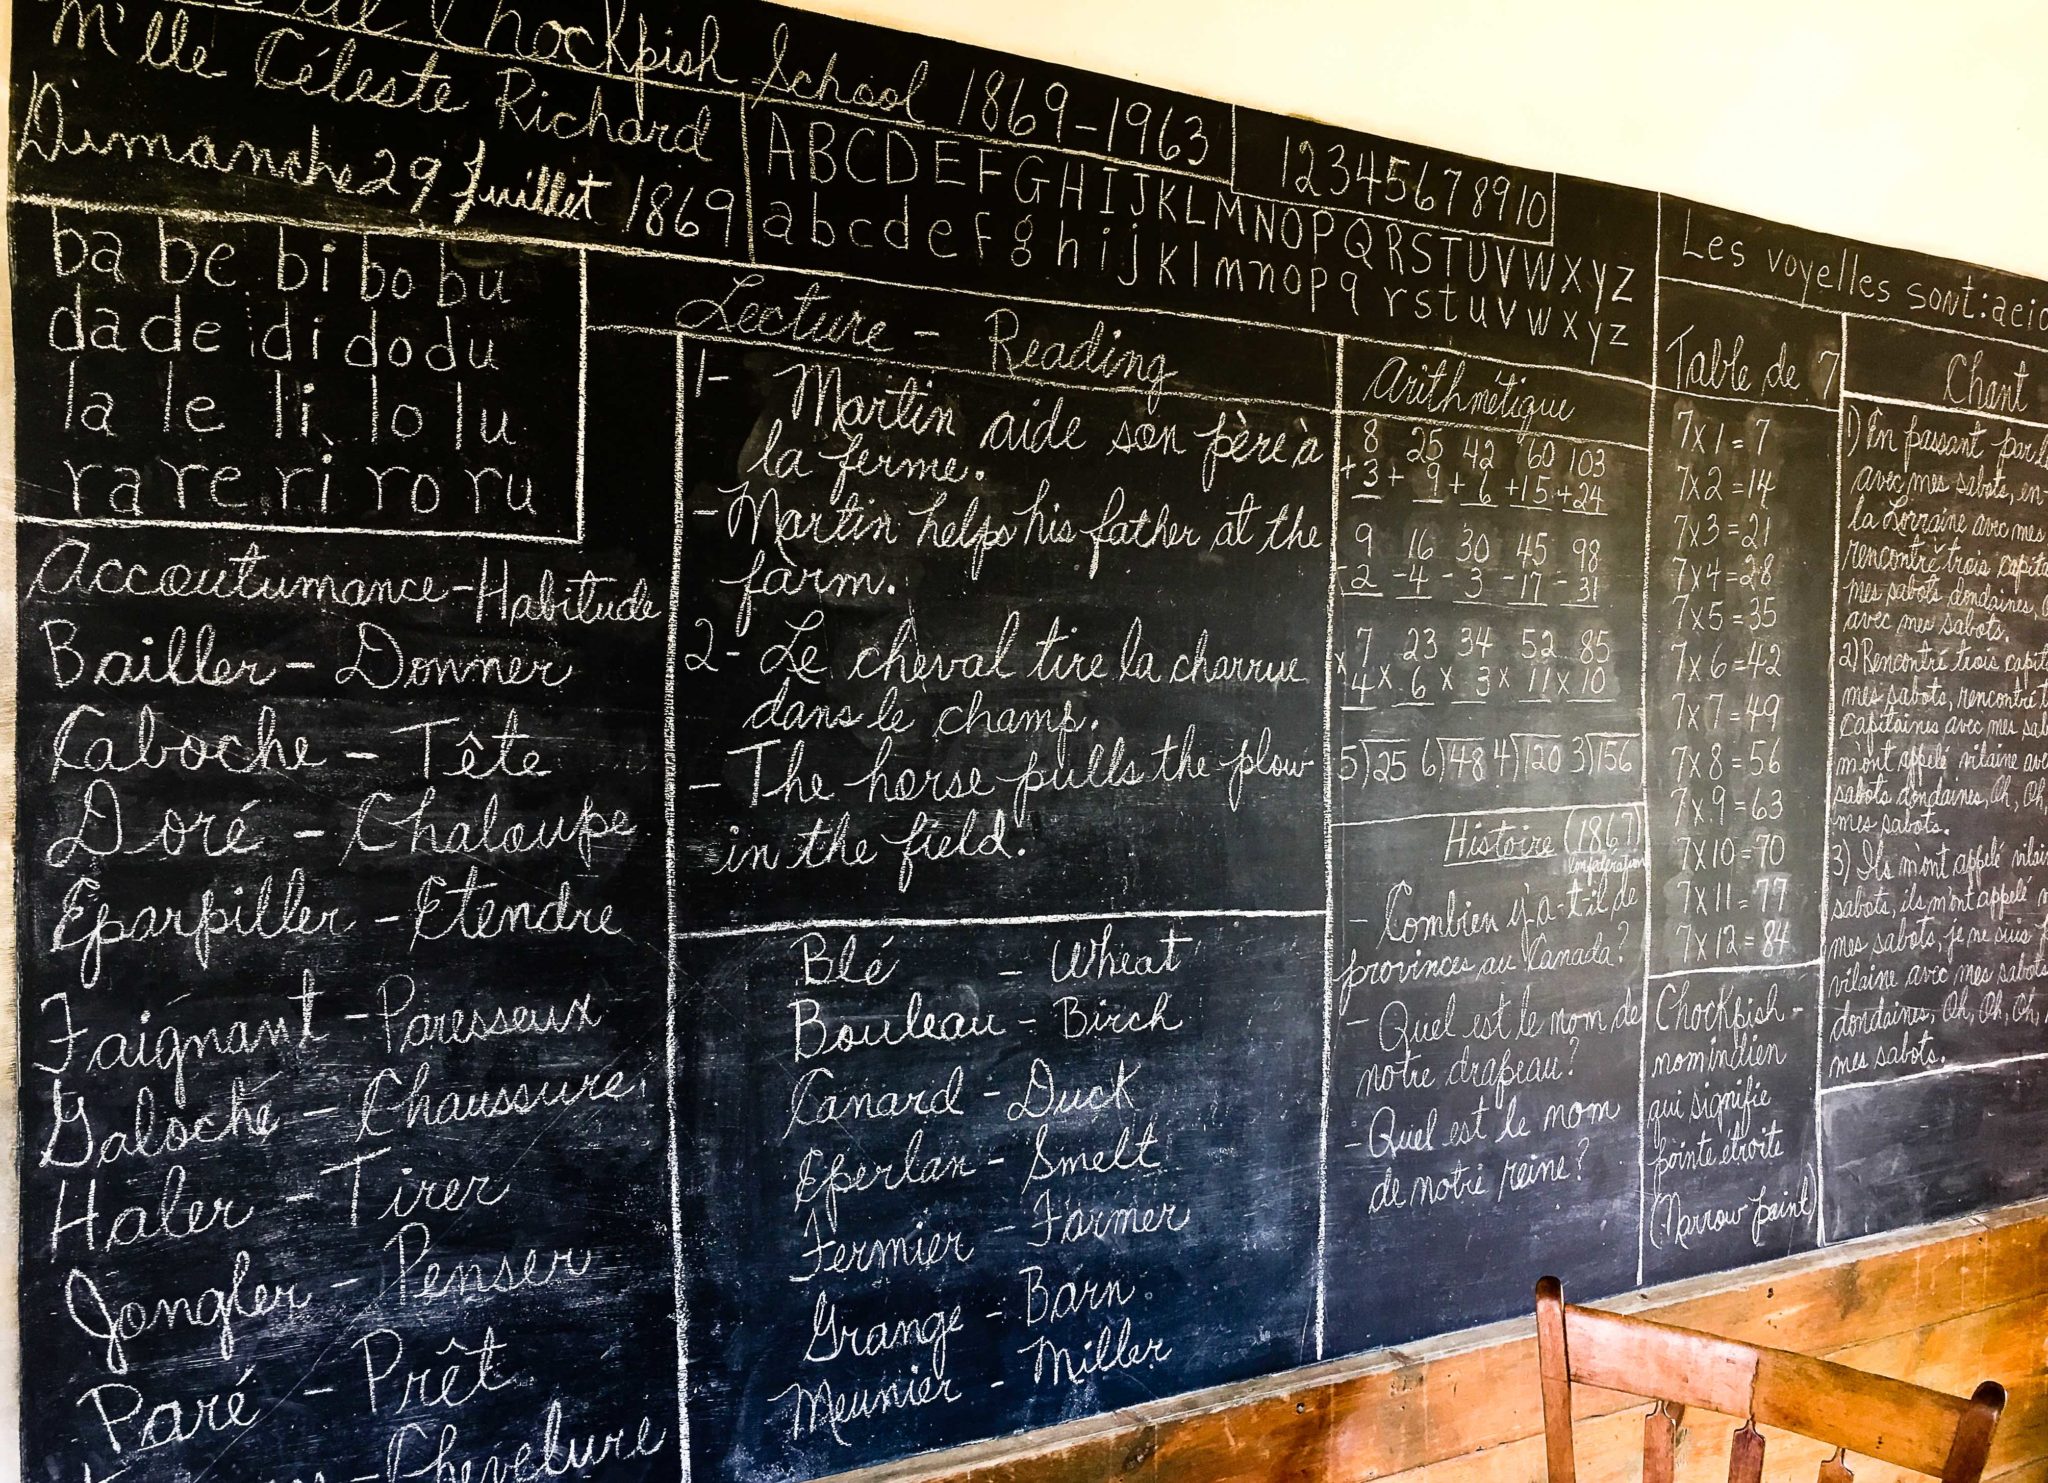 Chockpish School 1869-1963
M'lle Céleste Richard
Dimanche 29 Juillet 1869
ABCDEFGHIJKLMNOPQRSTUVWXYZ
abcdefghijklmnopqrstuvwxyz
12345678910
ba be bi bo bu
da de di do du
la le li lo lu
ra re ri ro ru
Accoutumance - Habitude
Bailler - Donner
Caboche - Tête
Doré - Chaloupe
Éparpiller - Etendre
Faignant - Paresseux
Galoche - Chaussure
Haler - Tirer
Jongler - Penser
Paré - Prêt
- Chevelure
Lecture - Reading
1- Martin aide son père à
la ferme.
- Martin helps his father at the
farm.
2- Le cheval tire la charrue
dans le champ.
- The horse pulls the plow
in the field.
Blé - Wheat
Bouleau - Birch
Canard - Duck
Eperlan - Smelt
Fermier - Farmer
Grange - Barn
Meunier - Miller
Arithmétique
8 25 42 60 103
+3 + 9 + 6 +15 +24
9 16 30 45 98
-2 -4 -3 -17 -31
7 23 34 52 85
x4 x 6 x 3 x 11 x 10
5)25 6)48 4)120 3)156
Histoire (1867)
Confédération
- Combien y'a-t-il de
provinces au Canada?
- Quel est le nom de
notre drapeau?
- Quel est le nom
de notre reine?
Les voyelles sont: aeio
Table de 7
7x1=7
7x2=14
7x3=21
7x4=28
7x5=35
7x6=42
7x7=49
7x8=56
7x9=63
7x10=70
7x11=77
7x12=84
Chockpish -
nom indien
qui signifie
pointe étroite
(Narrow point)
Chant
1) En passant par
avec mes sabots, en-
la Lorraine avec mes
rencontré trois
mes sabots dondaines,
avec mes sabots.
2) Rencontré trois
mes sabots, rencontré
capitaines avec mes
m'ont appelé vilaine
sabots dondaines, Oh, Oh,
mes sabots.
3) Ils m'ont appelé
sabots, ils m'ont appelé
mes sabots, je ne suis
vilaine avec mes sabots
dondaines, Oh, Oh, Oh,
mes sabots.